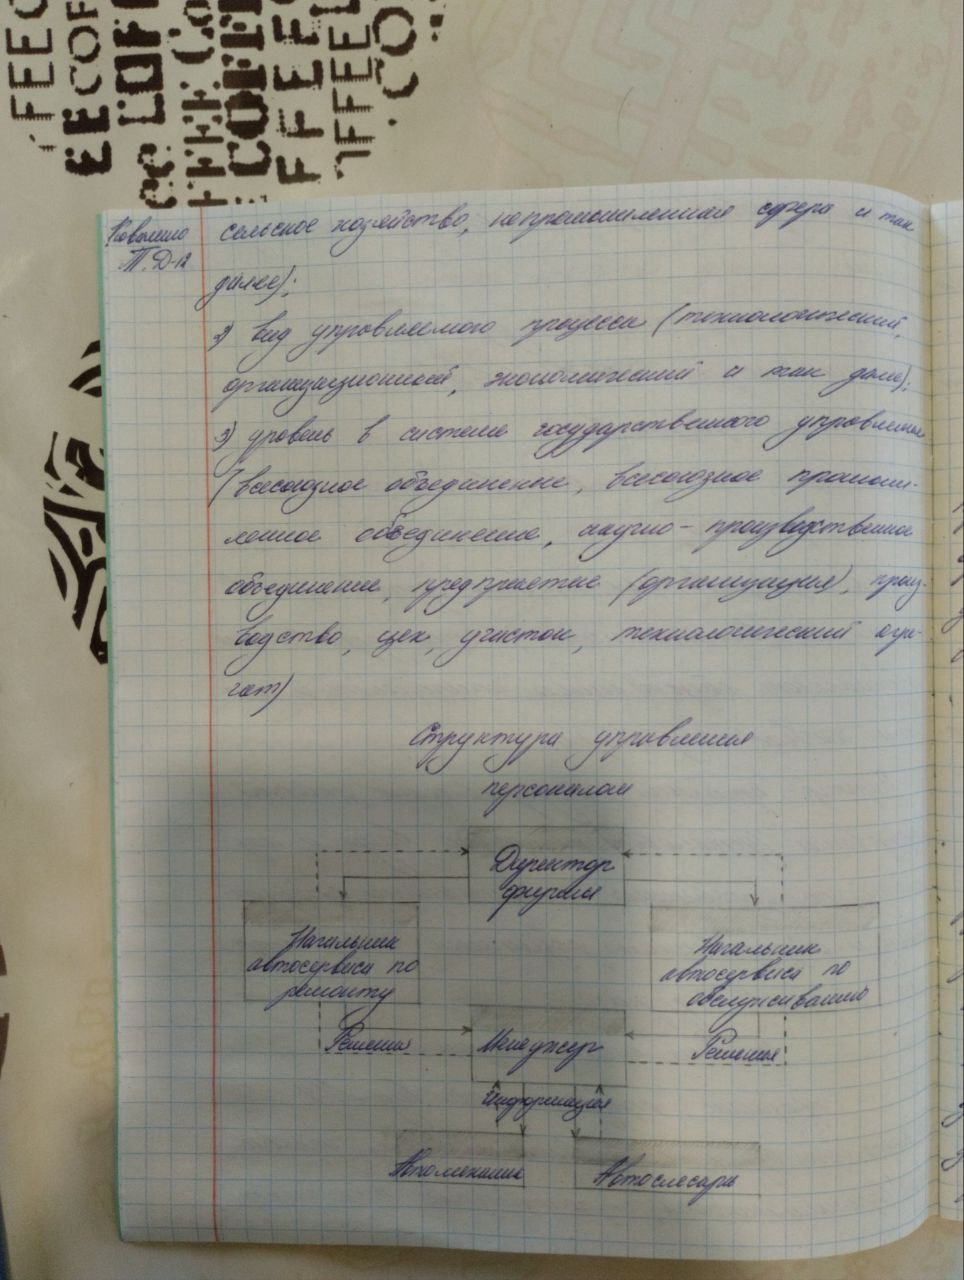 FEE
EE COF
THEE
COFFEE
FFEE
CO
Коваленко
Т. Д-12
сельское хозяйство, непромышленная сфера и так
далее);
2) вид управляемого процесса (технологический,
организационный, экономический и так далее);
3) уровень в системе государственного управления
(всесоюзное объединение, всесоюзное промыш-
ленное объединение, научно-производственное
объединение, предприятие (организация), произ-
водство, цех, участок, технологический агре-
гат)
Структура управления
персоналом
Директор
фирмы
Начальник
автосервиса по
ремонту
Начальник
автосервиса по
обслуживанию
Решения
Менеджер
Решения
Информация
Автомеханик
Автослесарь